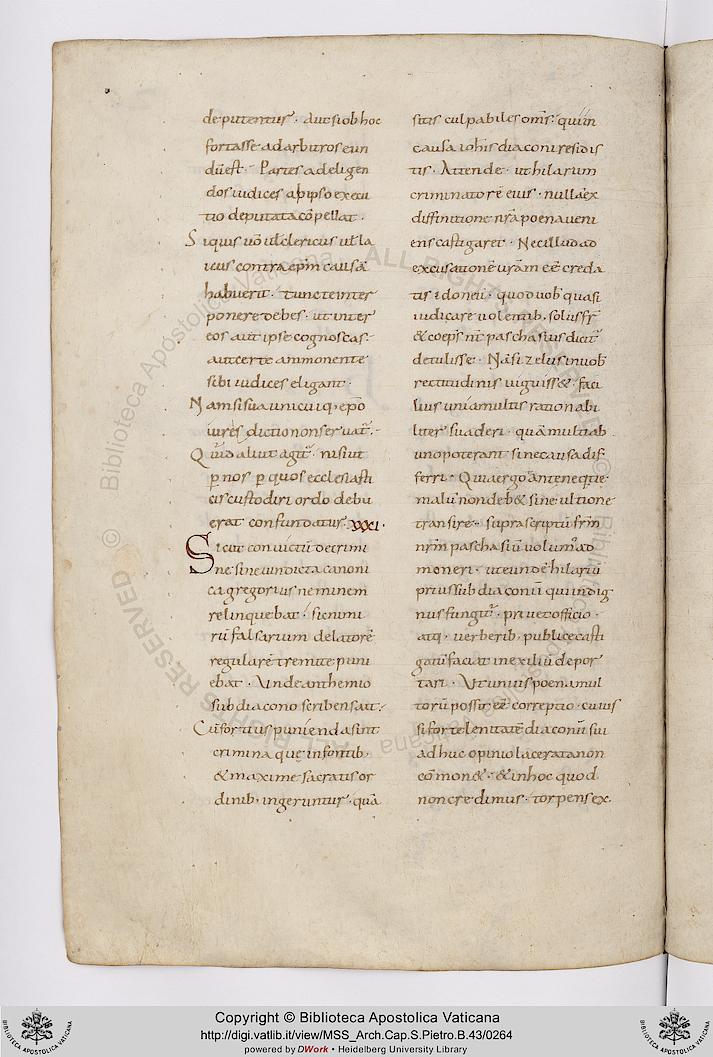 deputentur. Aut si ob hoc
fortasse ad arbitros eun
dū est. Partes ad eligen
dos iudices ab ipso execu
tio deputata cōpellat.
Siquis uō ut clericus ut la
icus contra ep̄m causā
habuerit. tunc te inter
ponere debes. ut inter
eos aut ipse cognoscas.
aut certe ammonente
sibi iudices eligant.
Nam si sua unicuiq; ep̄o
iurisdictio non seruat̄.
Quid aliut agit̄. nisi ut
ꝑ nos ꝑ quos ecclesiasti
cis custodiri ordo debu
erat confundatur. XXXI.
Sicut conuictū de crimi
ne sine uindicta canoni
ca gregorius neminem
relinquebat. sic nimi
rū falsarium delatorē
regulare tremite puni
ebat. Unde anthemio
subdiacono scribens ait.
Cū fortius punienda sint
crimina quę insontib.
& maxime sacratis or
dinib. ingeruntur. quā
sitis culpabiles om̄s. qui in
causa ioh̄is diaconi resedis
tis. Attende. ut hilarum
criminatorē eius. nulla ex
diffinitione ur̄a poena ueni
ens castigaret. Nec illud ad
excusationē ur̄am eē creda
tis idonei. quod uob quasi
iudicare uolentib. solus fr̄
& coep̄s nr̄ paschasius dicit̄
detulisse. Nā si zelus in uob
rectitudinis uiguiss&. faci
lius uni a multis rationabi
liter suaderi. quā multi ab
uno poterant sine causa dif
ferri. Quia ergo tantę nequitię
malū non deb& sine ultione
transire. suprascriptū fr̄m
nr̄m paschasiū uolum' ad
moneri. ut eundē hilariū
prius subdiaconū qui indig
nus fungit̄. priuet officio.
atq; uerberib. publice casti
gatū faciat in exiliū depor
tari. Ut unius poena mul
torū possit eē correptio. cuius
si forte lenitatē diaconū sui
ad huc opinio lacerata non
cōmon&. & in hoc quod
non credimus. torpens ex
Copyright © Biblioteca Apostolica Vaticana
http://digi.vatlib.it/view/MSS_Arch.Cap.S.Pietro.B.43/0264
powered by DWork • Heidelberg University Library